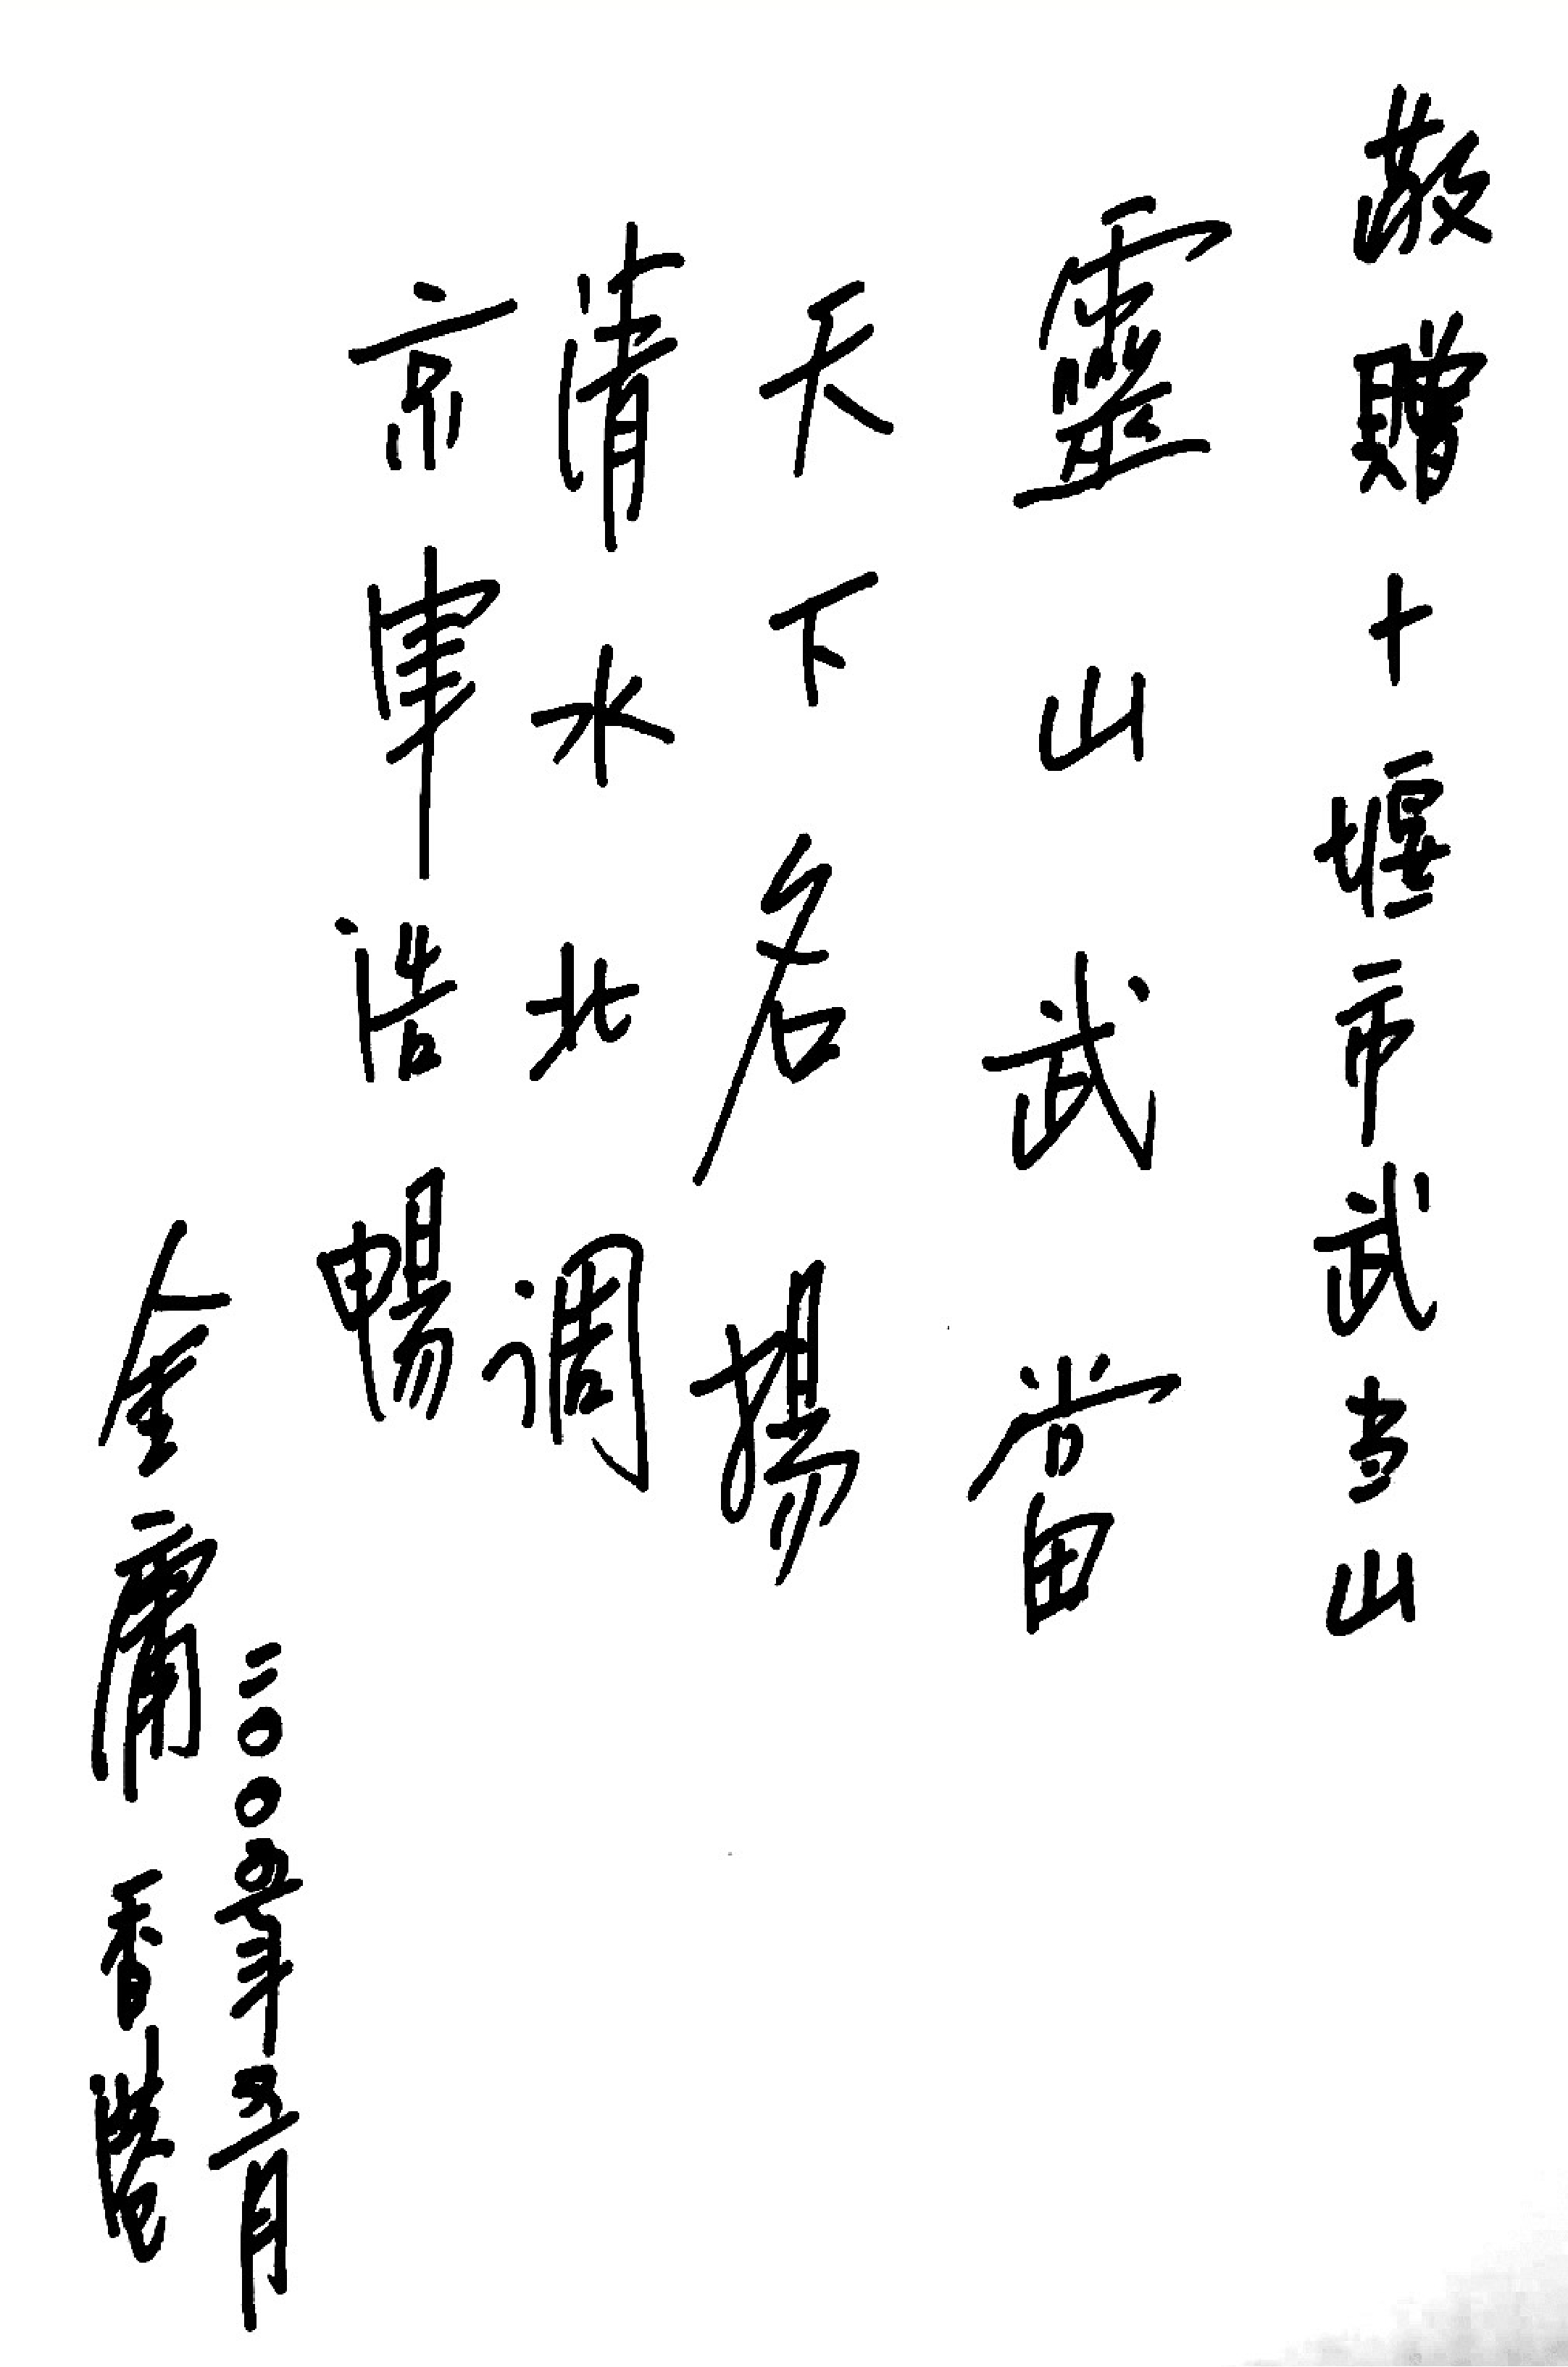 敬贈十堰市武当山
靈山武當
天下名揚
清水北调
京車浩暢
二〇〇五年五月
金庸 香港